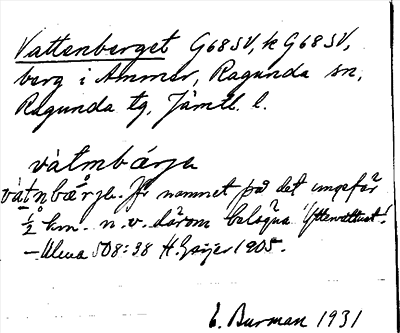 Vattenberget G68SV, k G68SV,
berg i Ammer, Ragunda sn,
Ragunda tg, Jämtl. l.
våtmbärje
våtnbärje. Är namnet på det ungefär
½ km. n.v. därom belägna
— Uleua 508:38 H. Geijer 1905.
E. Burman 1931